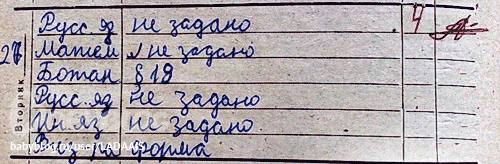 Русс. яз не задано 4
27 Матем не задано
Ботан. § 18
Русс. яз не задано
Ин. яз не задано
Физ-ра форма
Вторник
babyblog.ru/user/LADAAN